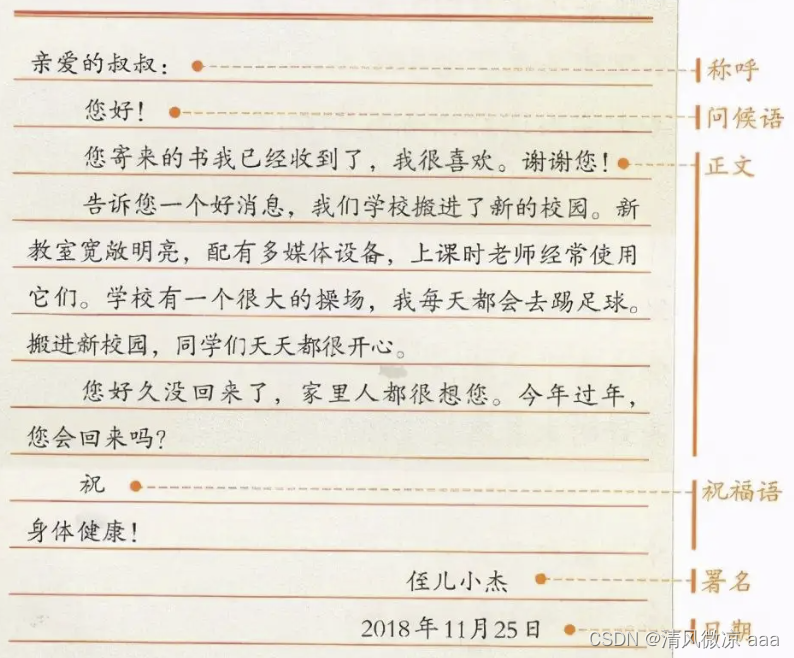 亲爱的叔叔： 称呼
您好！ 问候语
您寄来的书我已经收到了，我很喜欢。谢谢您！ 正文
告诉您一个好消息，我们学校搬进了新的校园。新
教室宽敞明亮，配有多媒体设备，上课时老师经常使用
它们。学校有一个很大的操场，我每天都会去踢足球。
搬进新校园，同学们天天都很开心。
您好久没回来了，家里人都很想您。今年过年，
您会回来吗？
祝 祝福语
身体健康！
侄儿小杰 署名
2018年11月25日 日期
CSDN @清风微凉 aaa